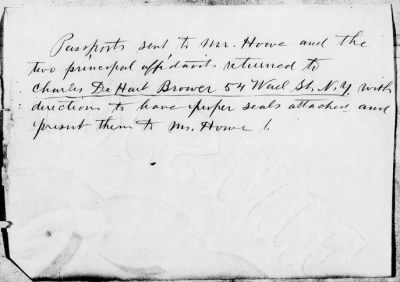 Passports sent to Mr. Howe and the
two principal affidavits returned to
Charles De Hart Brower 54 Wall St., N.Y. with
directions to have proper seals attached and
present them to Mr. Howe